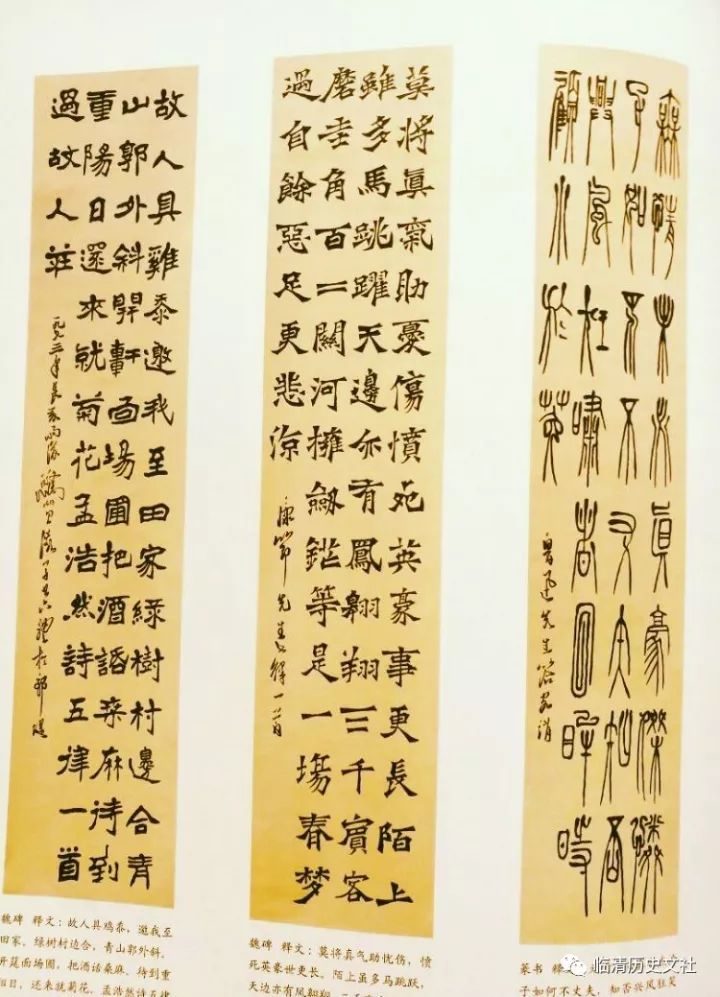 無情未必真豪傑憐
子如何不丈夫知否
興風狂嘯者回眸時
顧小於菟
魯迅先生答客誚
莫將真氣助憂傷憤死英豪事更長陌上
雖多馬跳躍天邊亦有鳳翱翔三千賓客
磨圭角百二關河擁劍鋩等是一場春夢
過自餘惡足更悲涼
康節先生
故人具雞黍邀我至田家綠樹村邊合青
山郭外斜開軒面場圃把酒話桑麻待到
重陽日還來就菊花孟浩然詩五律一首
過故人莊
魏碑 释文：故人具鸡黍，邀我至
田家。绿树村边合，青山郭外斜。
开筵面场圃，把酒话桑麻。待到重
阳日，还来就菊花。孟浩然诗五律
魏碑 释文：莫将真气助忧伤，愤
死英豪世更长。陌上虽多马跳跃，
天边亦有凤翱翔
篆书 释
子如何不丈夫，知否兴风狂笑
临清历史文社